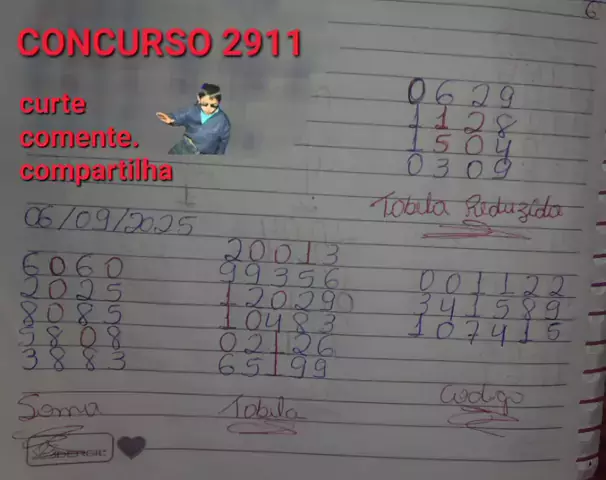 6
CONCURSO 2911
curte
comente.
compartilha
0629
1128
1504
0309
Tabila Reduzida
06/09/2025
6060
2025
8085
5808
3883
Soma
20013
99356
12029
10483
02126
65199
Tabila
001122
341589
107415
Codigo